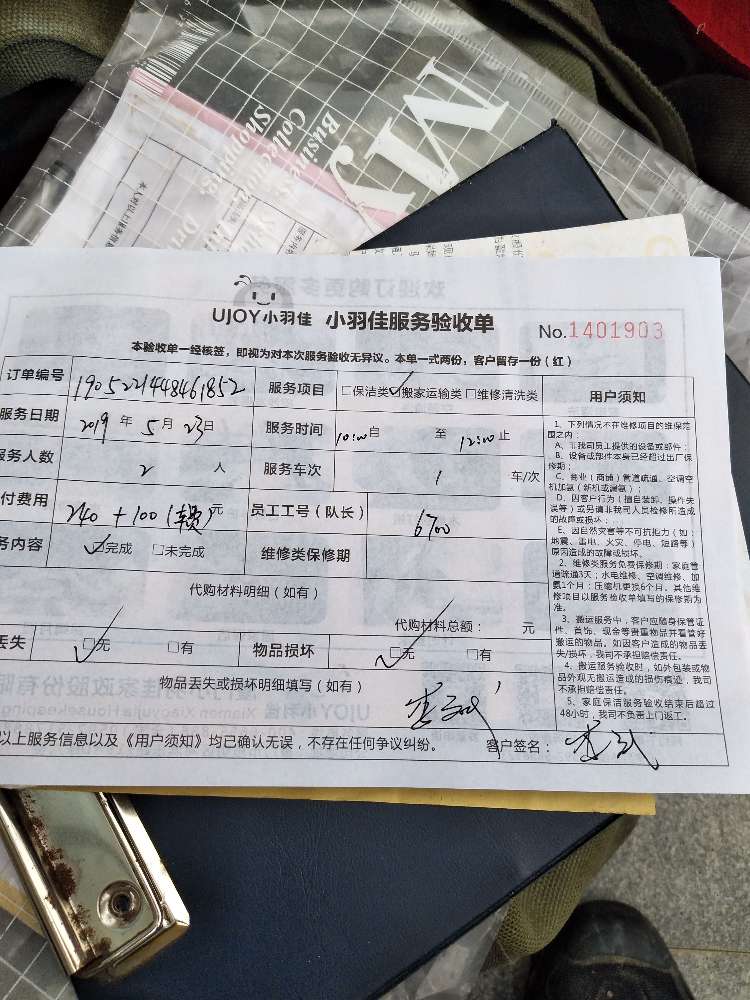 My
Business
Collection
Shopping
本人对以上服务信息
UJOY小羽佳 小羽佳服务验收单 No.1401903
本验收单一经核签，即视为对本次服务验收无异议。本单一式两份，客户留存一份（红）
订单编号 1905221448461852 服务项目 □保洁类☑搬家运输类□维修清洗类 用户须知
服务日期 2019 年 5 月 23日 服务时间 10:00自 至 12:00止
服务人数 2 人 服务车次 1 车/次
付费用 240 + 100 元 员工工号（队长） 6700
务内容 ☑完成 □未完成 维修类保修期
代购材料明细（如有）
代购材料总额： 元
丢失 ☑无 □有 物品损坏 ☑无 □有
物品丢失或损坏明细填写（如有）
以上服务信息以及《用户须知》均已确认无误，不存在任何争议纠纷。 客户签名：
1、下列情况不在维修项目的维保范
围之内：
A、非我司员工提供的设备或部件；
B、设备或部件本身已经超过出厂保
修期；
C、商业（商铺）管道疏通、空调空
机加氨（新机或漏氨）；
D、因客户行为（擅自装卸、操作失
误等）或另请非我司人员检修所造成
的故障或损坏；
E、因自然灾害等不可抗拒力（如：
地震、雷电、火灾、停电、短路等）
原因造成的故障或损坏。
2、维修类服务免费保修期：家庭管
道疏通3天；水电维修、空调维修、加
氨1个月；压缩机更换6个月。其他维
修项目以服务验收单填写的保修期为
准。
3、搬运服务中，客户应随身保管证
件、首饰、现金等贵重物品并看管好
搬运的物品。如因客户造成的物品丢
失/损坏，我司不承担赔偿责任。
4、搬运服务验收时，如外包装或物
品外观无搬运造成的损伤痕迹，我司
不承担赔偿责任。
5、家庭保洁服务验收结束后超过
48小时，我司不负责上门返工。